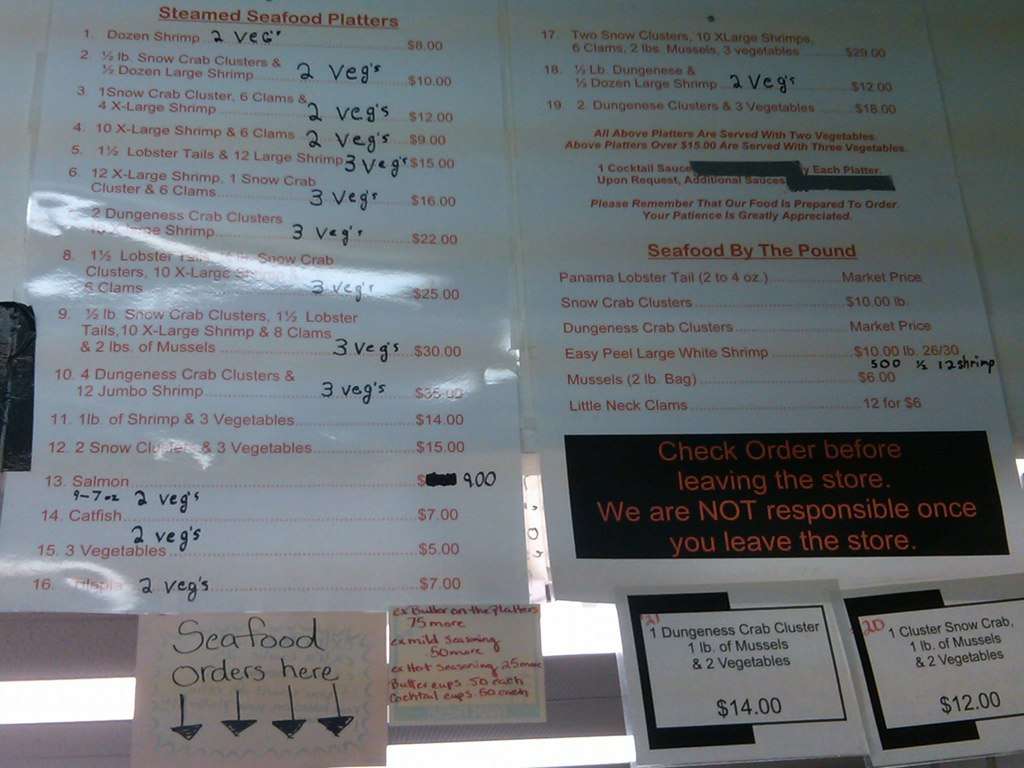 Steamed Seafood Platters
1. Dozen Shrimp 2 veg's $8.00
2. ½ lb. Snow Crab Clusters &
½ Dozen Large Shrimp 2 veg's $10.00
3. 1Snow Crab Cluster, 6 Clams &
4 X-Large Shrimp 2 veg's $12.00
4. 10 X-Large Shrimp & 6 Clams 2 veg's $9.00
5. 1½ Lobster Tails & 12 Large Shrimp 3 veg's $15.00
6. 12 X-Large Shrimp, 1 Snow Crab
Cluster & 6 Clams 3 veg's $16.00
2 Dungeness Crab Clusters
Shrimp 3 veg's $22.00
8. 1½ Lobster Snow Crab
Clusters, 10 X-Large
6 Clams 3 veg's $25.00
9. ½ lb. Snow Crab Clusters, 1½ Lobster
Tails,10 X-Large Shrimp & 8 Clams
& 2 lbs. of Mussels 3 veg's $30.00
10. 4 Dungeness Crab Clusters &
12 Jumbo Shrimp 3 veg's $35.00
11. 1lb. of Shrimp & 3 Vegetables $14.00
12. 2 Snow Clusters & 3 Vegetables $15.00
13. Salmon $ 9.00
9-7oz 2 veg's
14. Catfish $7.00
2 veg's
15. 3 Vegetables $5.00
16. Tilapia 2 veg's $7.00
17. Two Snow Clusters, 10 XLarge Shrimps,
6 Clams, 2 lbs. Mussels, 3 vegetables $29.00
18. ½ Lb. Dungenese &
½ Dozen Large Shrimp 2 veg's $12.00
19 2 Dungenese Clusters & 3 Vegetables $18.00
All Above Platters Are Served With Two Vegetables.
Above Platters Over $15.00 Are Served With Three Vegetables.
1 Cocktail Sauce y Each Platter.
Upon Request, Additional Sauces
Please Remember That Our Food Is Prepared To Order.
Your Patience Is Greatly Appreciated.
Seafood By The Pound
Panama Lobster Tail (2 to 4 oz.) Market Price
Snow Crab Clusters $10.00 lb.
Dungeness Crab Clusters Market Price
Easy Peel Large White Shrimp $10.00 lb. 26/30
500 ½ 12 shrimp
Mussels (2 lb. Bag) $6.00
Little Neck Clams 12 for $6
Check Order before
leaving the store.
We are NOT responsible once
you leave the store.
Seafood
orders here
ex Butter on the platters
75 more
ex mild seasoning
50 more
ex Hot Seasoning 25 more
Butter cups 50 each
Cocktail cups 60 each
21
1 Dungeness Crab Cluster
1 lb. of Mussels
& 2 Vegetables
$14.00
20
1 Cluster Snow Crab,
1 lb. of Mussels
& 2 Vegetables
$12.00